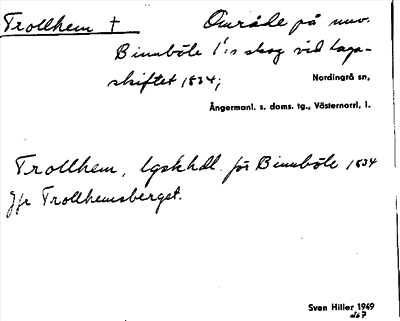 Trollhem †
Område på nuv.
Binnböle 1:s skog vid laga-
skiftet 1834;
Nordingrå sn,
Ångermanl. s. doms. tg., Västernorrl. l.
Trollhem, lgskhdl. för Binnböle 1834
Jfr Trollhemsberget.
Sven Hiller 1949